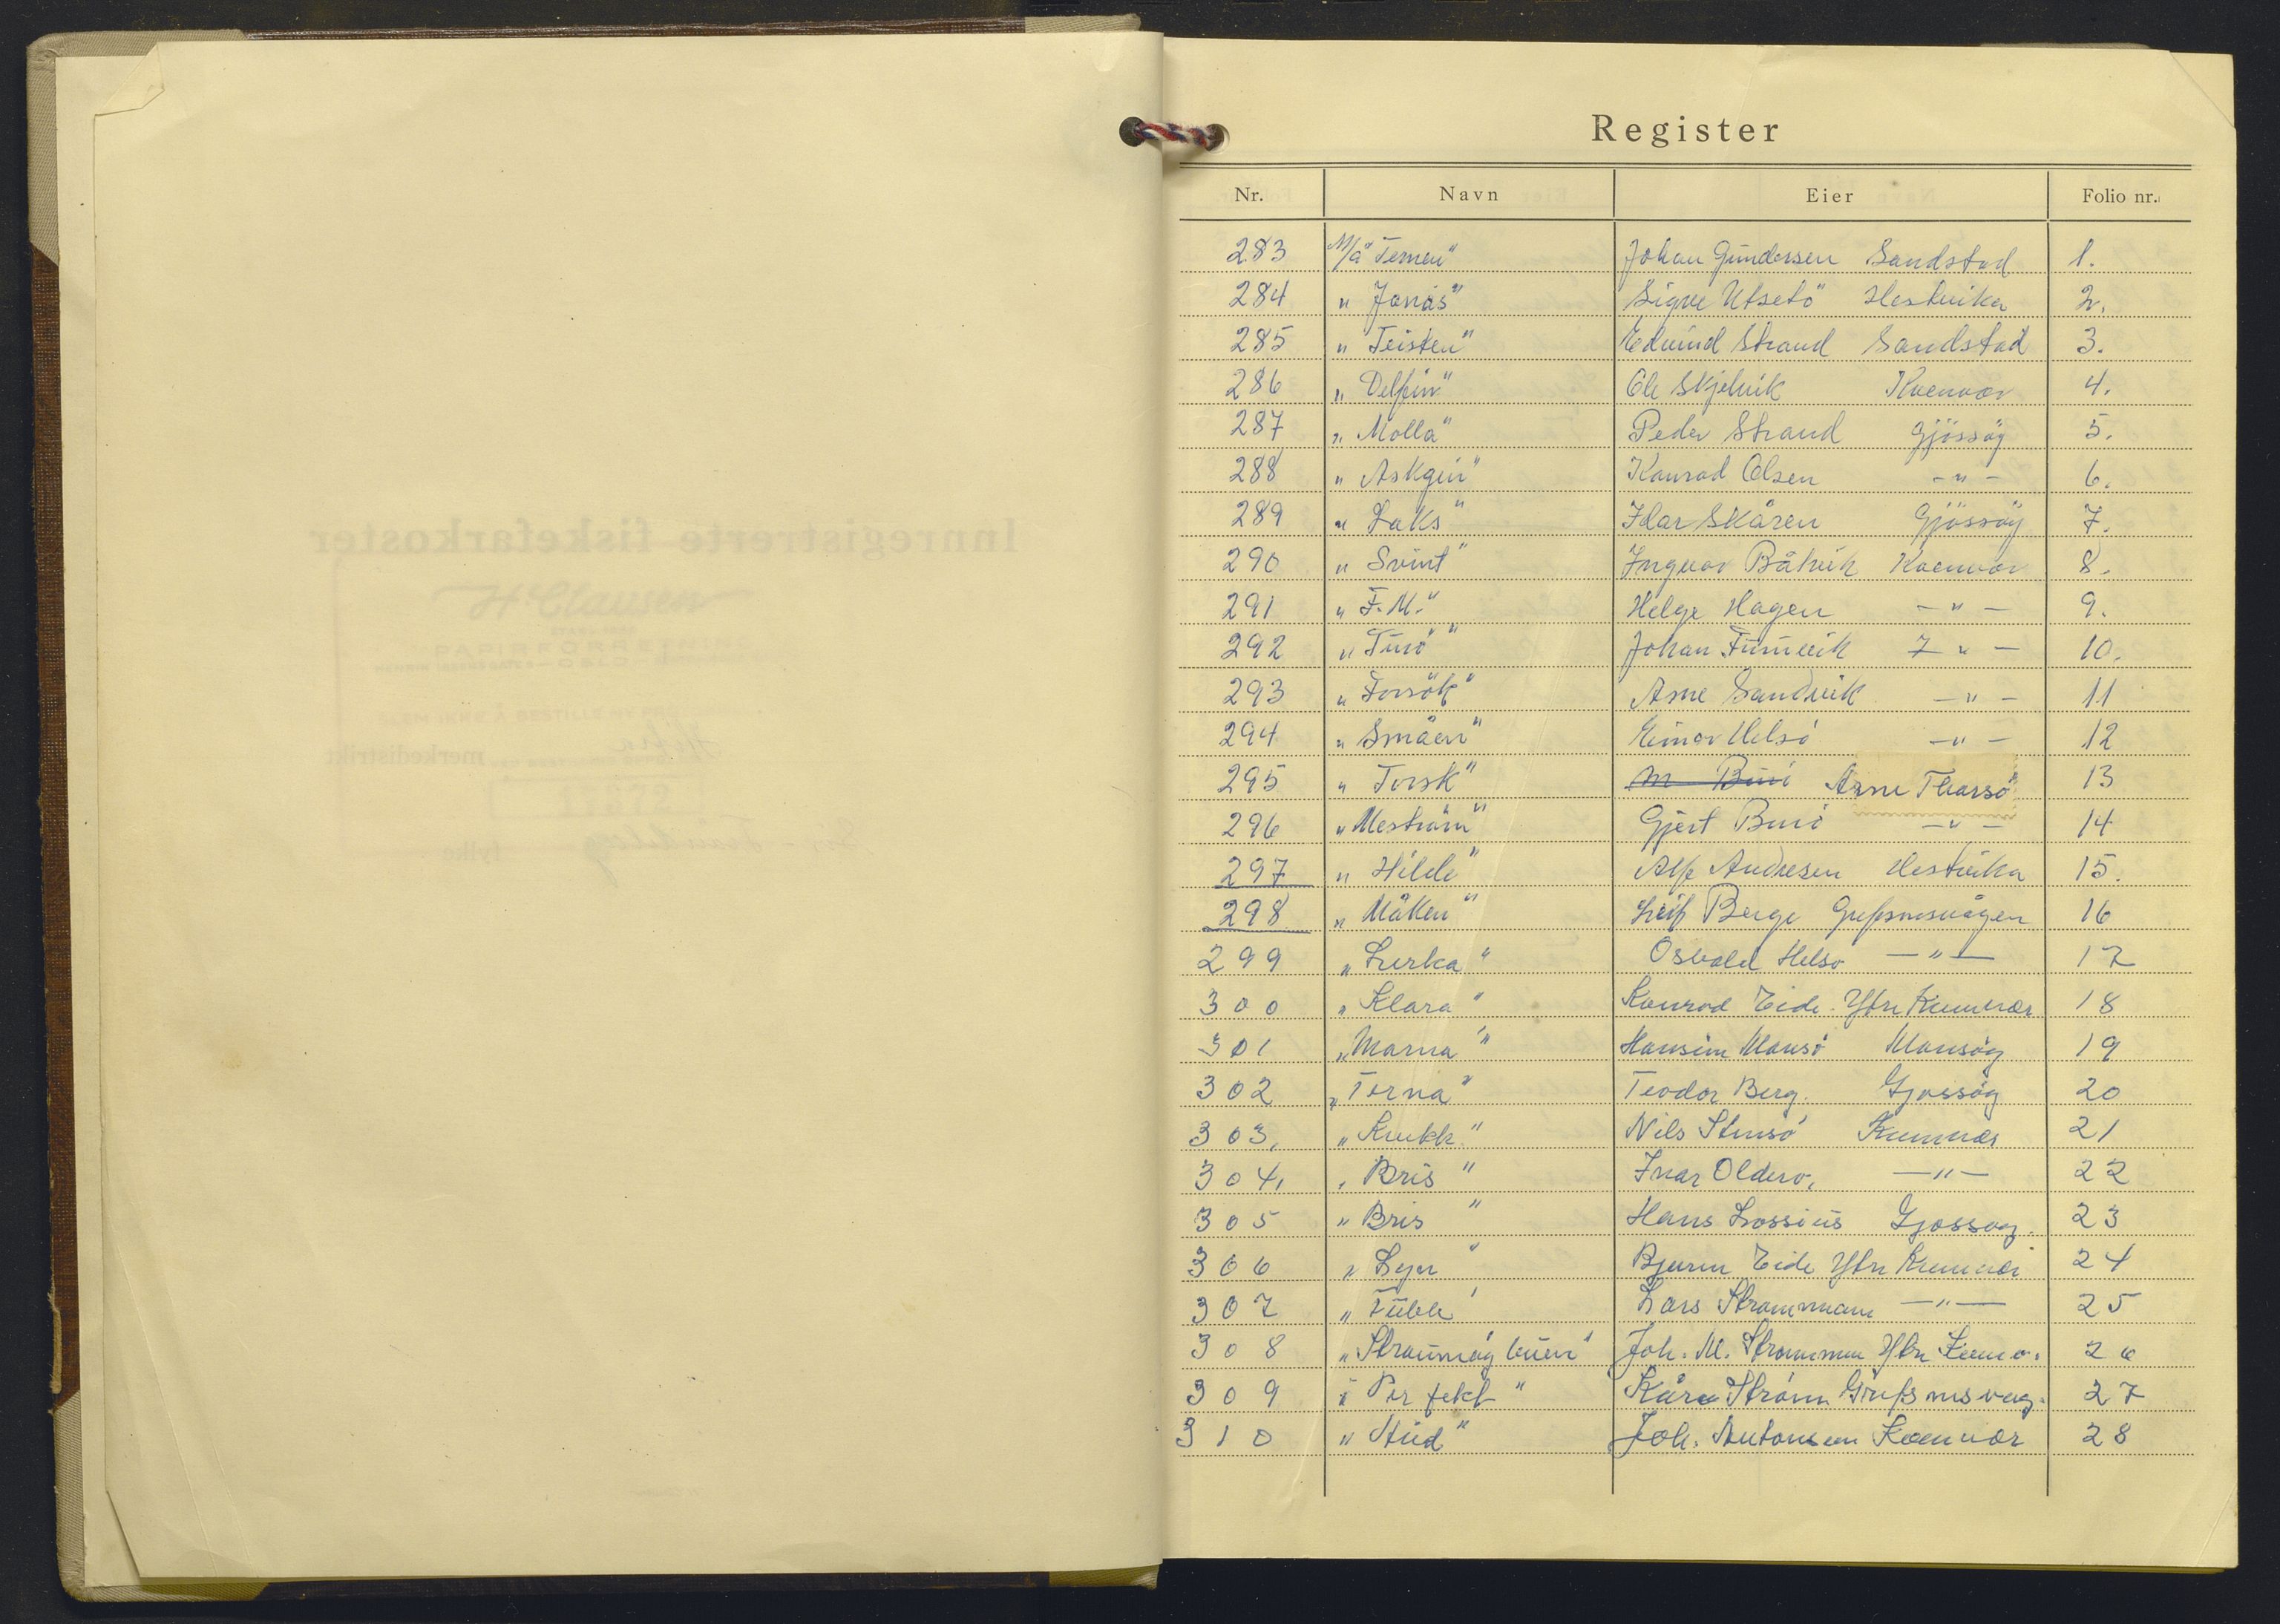 Register
Nr. Navn Eier Folio nr.
283 M/å "Ternen" Johan Gundersen Sandstad 1.
284 " Jonas" Signe Utsetö Hestvika 2.
285 " Teisten" Edvind Strand Sandstad 3.
286 " Delfin" Ole Skjelvik Kvenvær 4.
287 " Molla" Peder Strand Gjössöy 5.
288 " Askgin" Konrad Olsen - " - 6.
289 " Laks" Idar Skåren Gjössöy 7.
290 " Svint" Ingvar Båtvik Kvenvær 8.
291 " F.M." Helge Hagen - " - 9.
292 " Tusö" Johan - " - 10.
293 " Forsök" Arne Sandvik - " - 11
294 " Småen" Einar Helsö - " - 12
295 " Torsk" M Buö Arne Tharsö 13
296 " Meström" Gjert Buö - " - 14
297 " Hilde" Alf Andresen Hestvika 15.
298 " Måken" Leif Berge Gryfsnesvågen 16
299 " Lerka" Osvald Helsö - " - 17
300 " Klara" Konrad Eide Ytre Kvenvær 18
301 " Marna" Hansin Mausö Mausöy 19
302 " Terna" Teodor Berg. Gjossöy 20
303, " Krukk" Nils Stensö Kvenvær 21
304, " Bris" Ivar Olderö, - " - 22
305 " Bris" Hans Lossius Gjossøy. 23
306 " Leyn" Bjarne Eide Ytre Kvenvær 24
307 " Lars Strømmann - " - 25
308 " Straumöy buen" Joh. M. Strømmen Ytre Kvenv. 26
309 " Perfekt" Kåre Ström Grufsnesvåg. 27
310 " Stud" Joh. Antonsen Kvenvær 28
Innregistrerte fiskefarkoster
H Clausen
merkedistrikt
11872
fylke